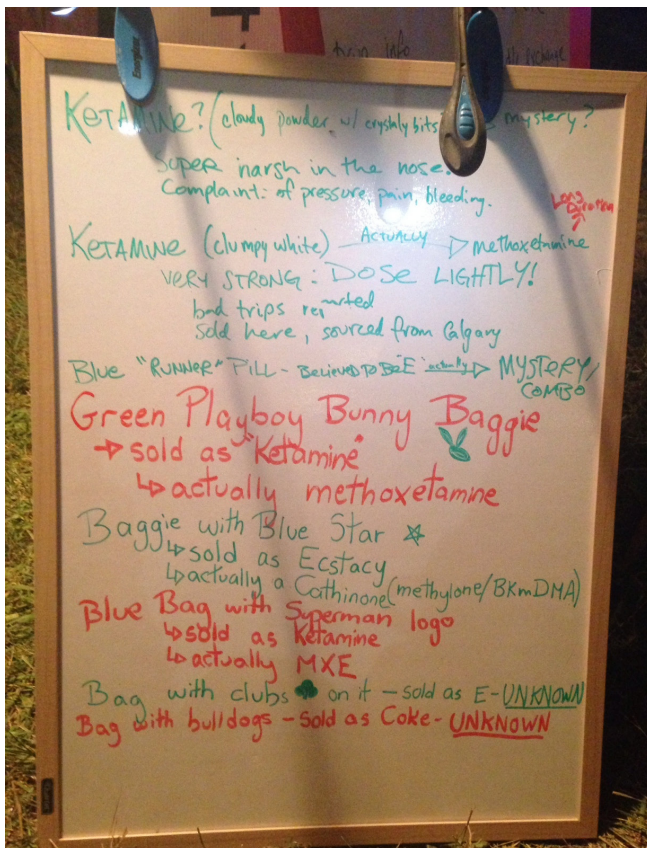 turn info
KETAMINE? (cloudy powder w/ crystaly bits mystery?
SUPER harsh in the nose.
Complaint: of pressure, pain, bleeding.
Long
Duration
KETAMINE (clumpy white) ACTUALLY methoxetamine
VERY STRONG: DOSE LIGHTLY!
bad trips reported
sold here, sourced from Calgary
Blue "RUNNER" PILL - BELIEVED TO BE "E" actually MYSTERY/
COMBO
Green Playboy Bunny Baggie
sold as "Ketamine"
actually methoxetamine
Baggie with Blue Star
sold as Ecstacy
actually a Cathinone (methylone/BKmDMA)
Blue Bag with Superman logo
sold as Ketamine
actually MXE
Bag with clubs on it - sold as E - UNKNOWN
Bag with bulldogs - sold as Coke - UNKNOWN
Energizer